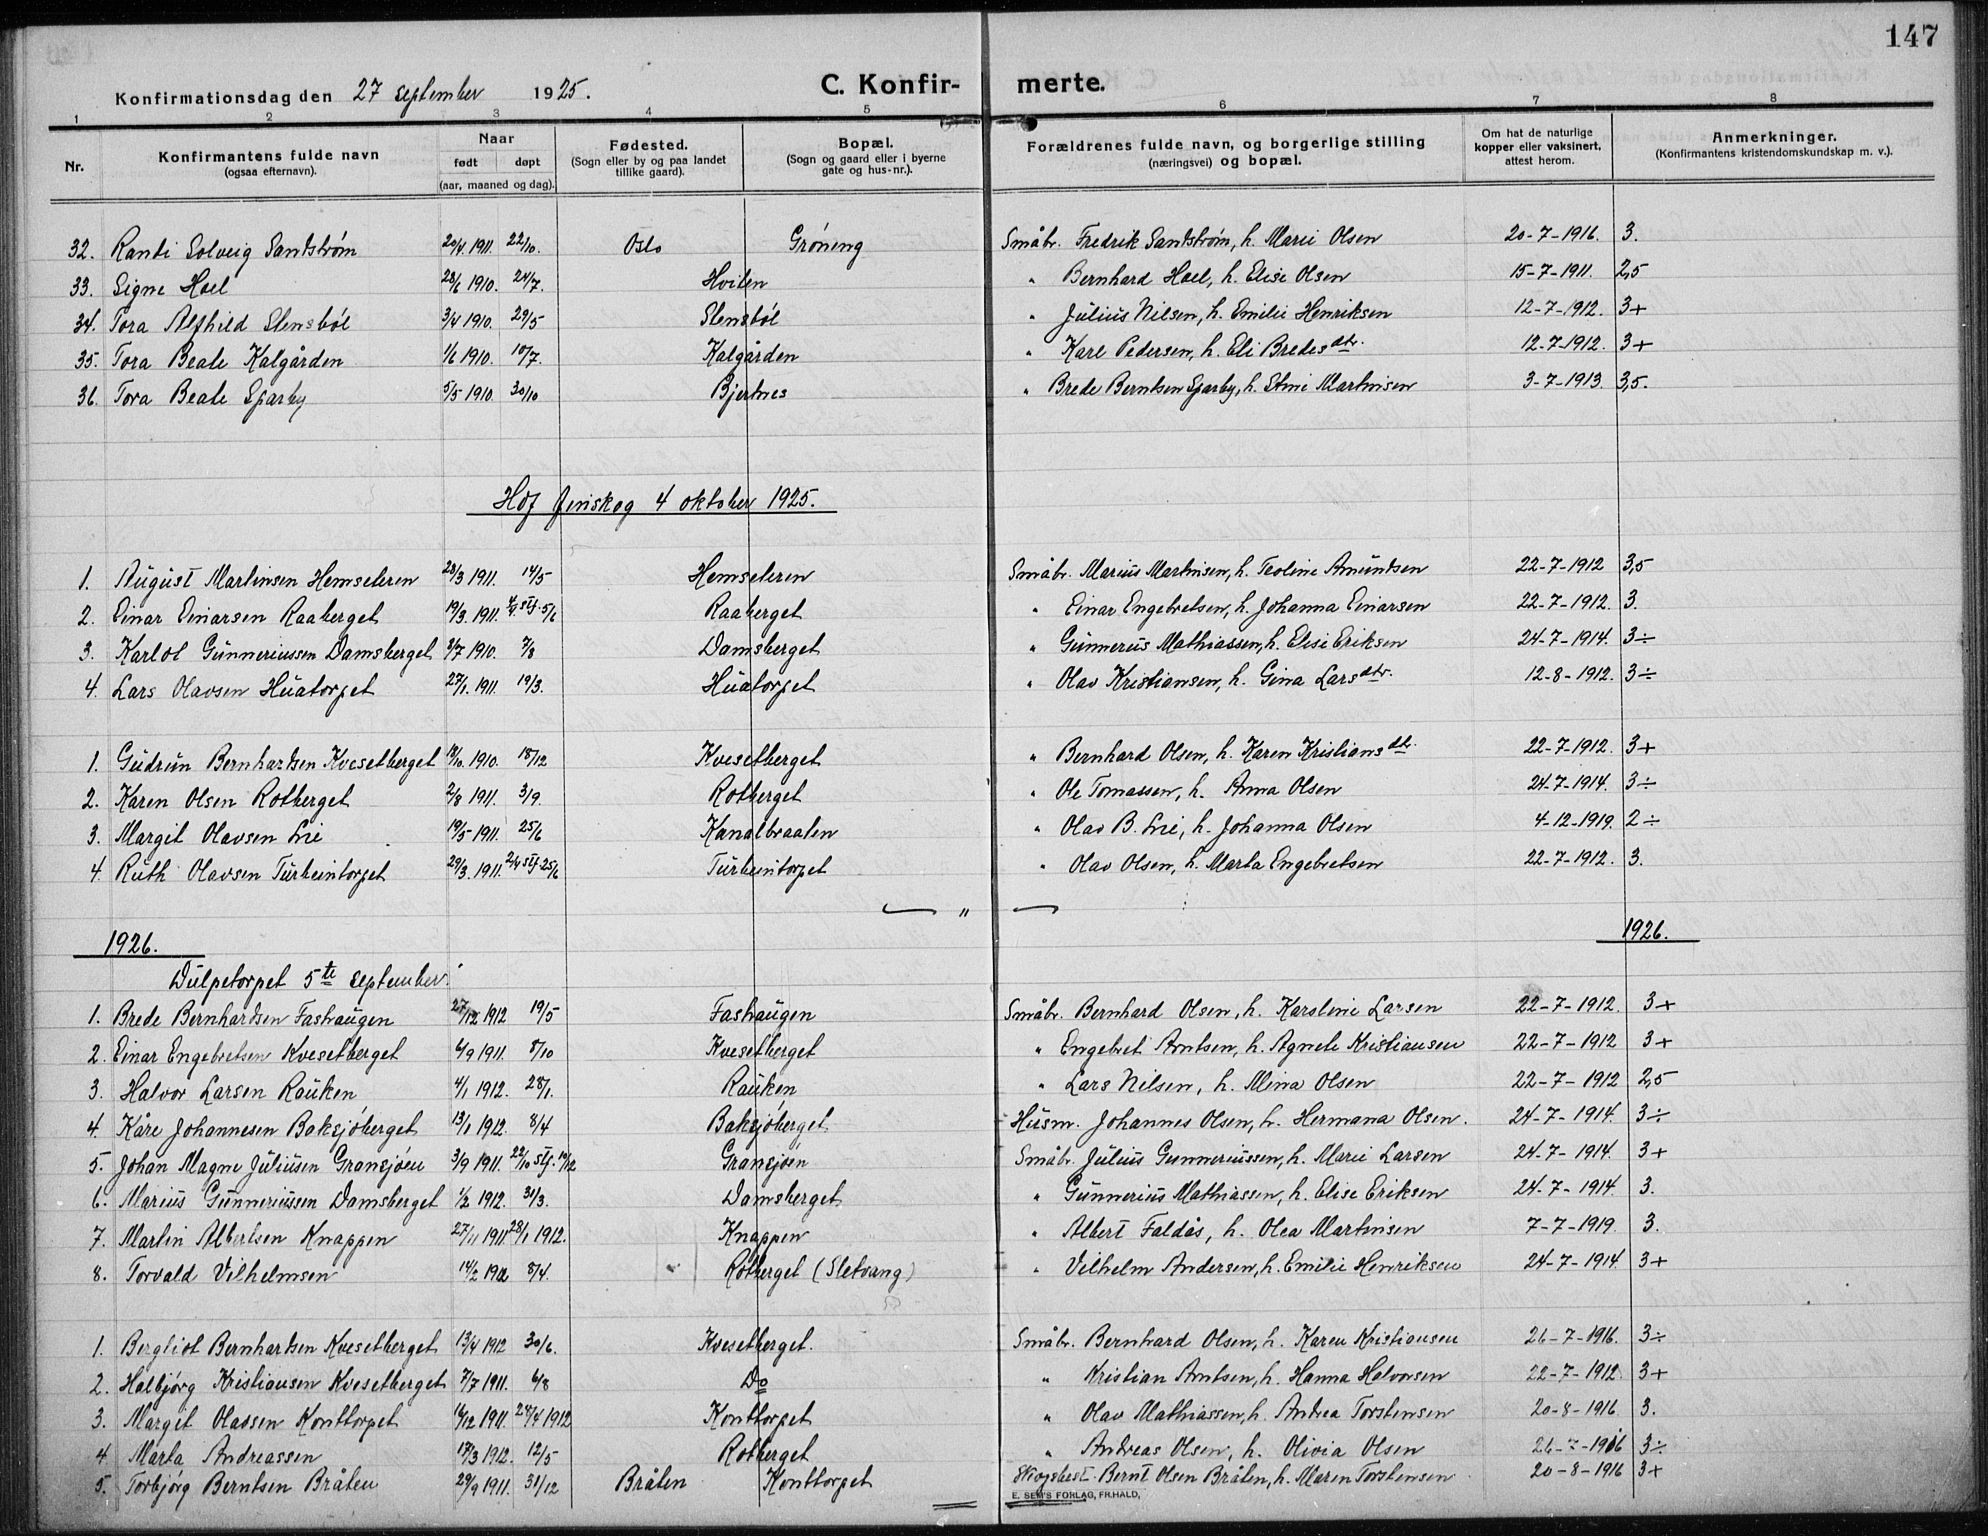 147
Konfirmationsdag den 27 september 1925.
C. Konfir- merte.
1 2 3 4 5 6 7 8
Nr. Konfirmantens fulde navn (ogsaa efternavn). Naar født døpt (aar, maaned og dag). Fødested. (Sogn eller by og paa landet tillike gaard). Bopæl. (Sogn og gaard eller i byerne gate og hus-nr.). Forældrenes fulde navn, og borgerlige stilling (næringsvei) og bopæl. Om hat de naturlige kopper eller vaksinert, attest herom. Anmerkninger. (Konfirmantens kristendomskundskap m. v.).
32. Randi Solveig Sandstrøm 20/4 1911. 22/10. Oslo Grøneng Småbr. Fredrik Sandstrøm, h. Marie Olsen 20-7-1916. 3.
33. Signe Hoel 28/6 1910. 24/7. Hvilen " Bernhard Hoel, h. Elise Olsen 15-7-1911. 2,5
34. Tora Alfhild Stensbøl 3/4 1910. 29/5 Stensbøl " Julius Nilsen, h. Emilie Henriksen 12-7-1912. 3+
35. Tora Beate Kalgården 1/6 1910. 10/7. Kalgården " Karl Pedersen, h. Eli Bredesdtr. 12-7-1912. 3+
36. Tora Beate Sparby 5/5 1910. 30/10 Bjertnes " Brede Berntsen Sparby, h. Stine Martinsen 3-7-1913. 3,5.
Hof finskog 4 oktober 1925.
1. August Martinsen Hemseteren 28/3 1911. 14/5 Hemseteren Småbr. Marius Martinsen, h. Teoline Amundsen 22-7-1912 3,5
2. Einar Einarsen Raaberget 19/3. 1911. stf. 5/6 Raaberget " Einar Engebretsen, h. Johanna Einarsen 22-7-1912. 3.
3. Karlot Gunneriussen Damsberget 2/7 1910. 7/8 Damsberget " Gunnerus Mathiassen, h. Elise Eriksen 24-7-1914. 3÷
4. Lars Olavsen Huatorpet 27/1. 1911. 19/3. Huatorpet " Olav Kristiansen, h. Gina Larsdtr. 12-8-1912. 3÷
1. Gudrun Bernhardsen Kvesetberget 18/10. 1910. 18/12 Kvesetberget " Bernhard Olsen, h. Karen Kristiansdtr. 22-7-1912. 3+
2. Karen Olsen Rotberget 2/8 1911. 3/9. Rotberget " Ole Tomassen, h. Anna Olsen 24-7-1914. 3÷
3. Margit Olavsen Lie 19/5 1911. 25/6 Kanalbraaten " Olav B. Lie, h. Johanna Olsen 4-12-1919. 2÷
4. Ruth Olavsen Turheintorpet 29/3. 1911. 2/4 stf. 25/6 Turheintorpet " Olav Olsen, h. Marta Engebretsen 22-7-1912. 3.
— " —
1926. 1926.
Dulpetorpet 5te september.
1. Brede Bernhardsen Fashaugen 27/12 1912 19/5 Fashaugen Småbr. Bernhard Olsen, h. Karoline Larsen 22-7-1912. 3+
2. Einar Engebretsen Kvesetberget 6/9 1911. 8/10 Kvesetberget " Engebret Arntsen, h. Agnete Kristiansen 22-7-1912 3+
3. Halvor Larsen Rauken 4/1 1912. 28/1. Rauken " Lars Nilsen, h. Mina Olsen 22-7-1912 2,5
4. Kåre Johannesen Baksjøberget 13/1 1912. 8/4 Baksjøberget. Husm. Johannes Olsen, h. Hermana Olsen. 24-7-1914. 3÷
5. Johan Magne Juliusen Gransjøen 3/9 1911. 22/10 stf. 10/12 Gransjøen Småbr. Julius Gunneriussen, h. Marie Larsen 24-7-1914. 3+
6. Marius Gunneriussen Damsberget 1/2 1912. 31/3. Damsberget " Gunnerius Mathiassen, h. Elise Eriksen 24-7-1914. 3.
7. Martin Albertsen Knappen 27/11 1911 28/1 1912. Knappen " Albert Faldås, h. Olea Martinsen 7-7-1919. 3.
8. Torvald Vilhelmsen 14/2 1912 8/4. Rotberget (Sletvang) " Vilhelm Andersen, h. Emilie Henriksen 24-7-1914 3+
1. Bergliot Bernhardsen Kvesetberget 13/4 1912 30/6. Kvesetberget. Småbr. Bernhard Olsen, h. Karen Kristiansen 26-7-1916. 3÷
2. Halbjørg Kristiansen Kvesetberget 7/7 1911. 6/8 Do " Kristian Arntsen, h. Hanna Halvorsen 22-7-1912 3+
3. Margit Olavsen Konttorpet 16/12 1911. 28/4 1912 Konttorpet " Olav Mathiassen, h. Andrea Torstensen 20-8-1916 3.
4 Marta Andreassen 17/3 1912. 12/5 Rotberget " Andreas Olsen, h. Olivia Olsen 26-7-1916 3÷
5. Torbjørg Berntsen Bråten 29/9 1911. 31/12 Bråten Konttorpet Skogsbest. Bernt Olsen Bråten, h. Maren Torstensen 20-8-1916 3+
E. SEM'S FORLAG, FR.HALD,